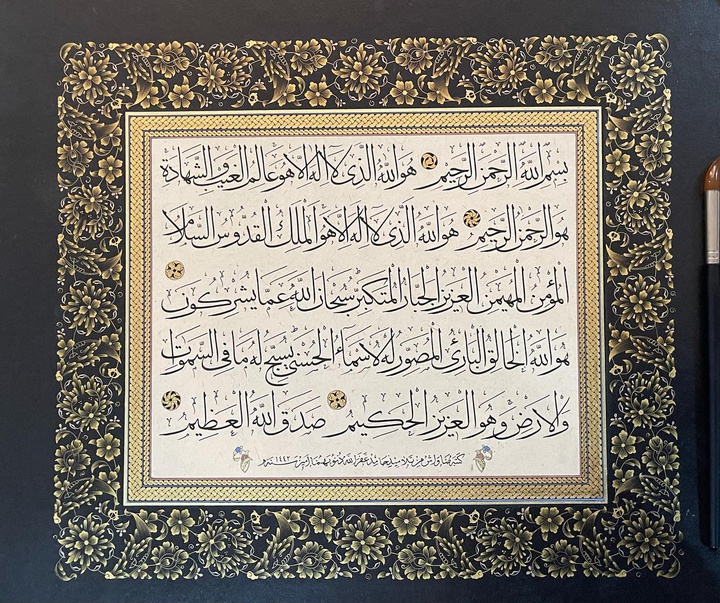 بسم الله الرحمن الرحيم هو الله الذى لا اله الا هو عالم الغيب والشهادة
هو الرحمن الرحيم هو الله الذى لا اله الا هو الملك القدوس السلام
المؤمن المهيمن العزيز الجبار المتكبر سبحان الله عما يشركون
هو الله الخالق البارئ المصور له الاسماء الحسنى يسبح له ما فى السموات
والارض وهو العزيز الحكيم صدق الله العظيم
كتبه من تلاميذ حامد غفر الله ذنوبهما آمين سنه ١٤٤٢